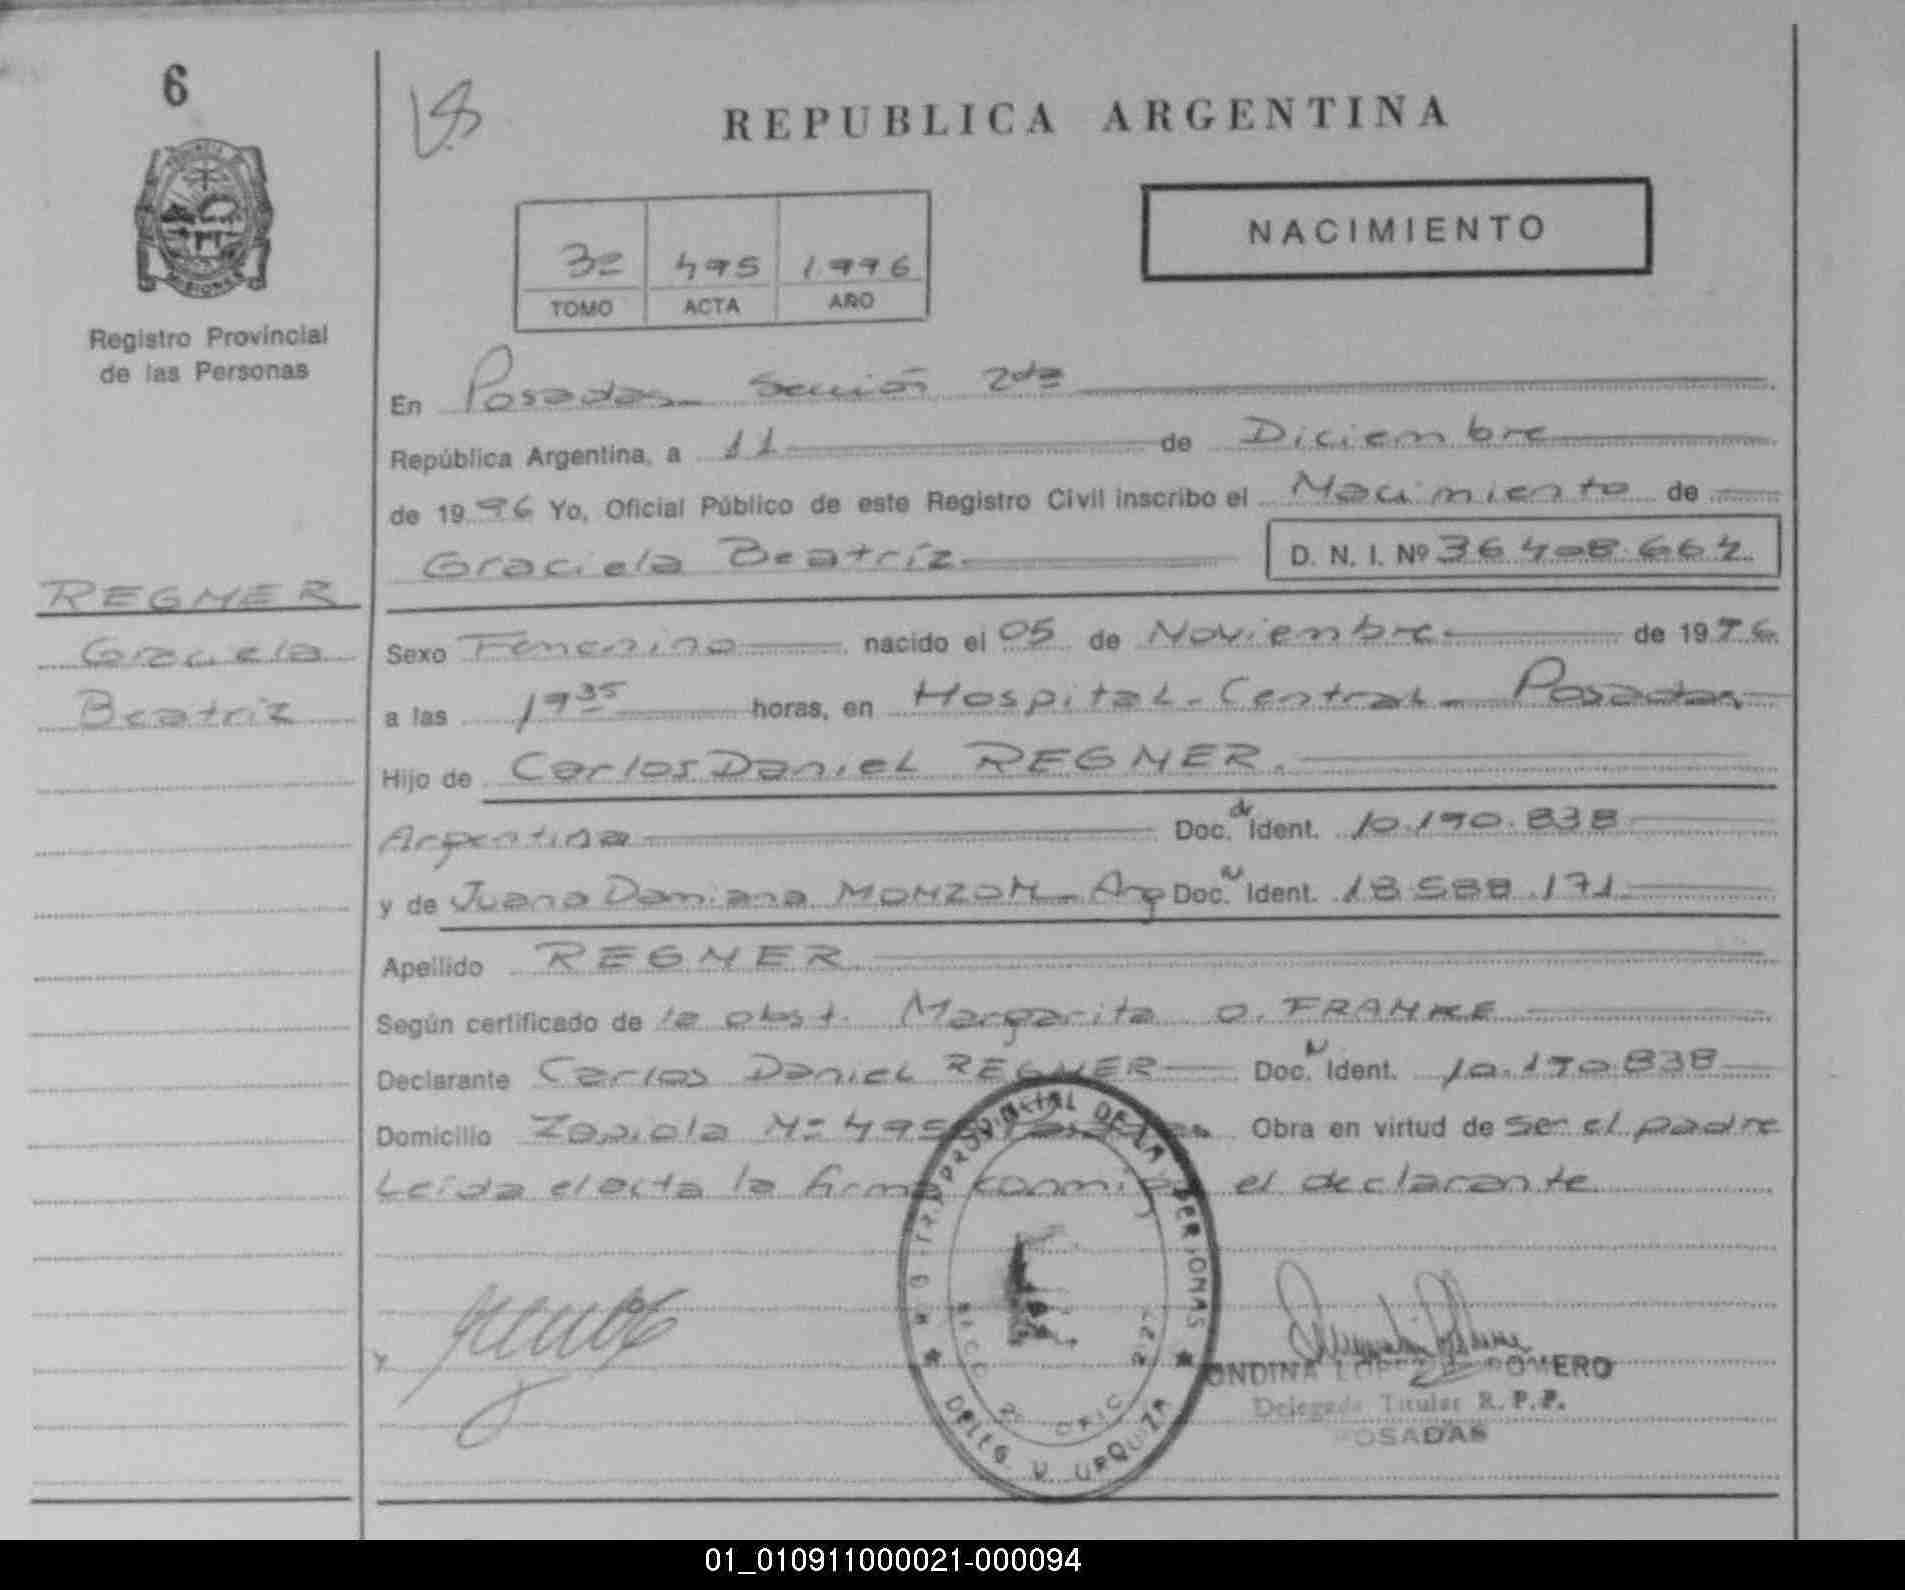 6
REPUBLICA ARGENTINA
NACIMIENTO
3º 495 1996
TOMO ACTA AÑO
Registro Provincial
de las Personas
En Posadas Sección 2da
República Argentina, a 11 de Diciembre
de 1996 Yo, Oficial Público de este Registro Civil inscribo el Nacimiento de
Graciela Beatríz D. N. I. Nº 36.408.664
REGNER
Graciela
Beatriz
Sexo Femenino nacido el 05 de Noviembre de 1996
a las 19 35 horas, en Hospital Central Posadas
Hijo de Carlos Daniel REGNER.
Argentina Doc. de Ident. 10.190.838
y de Juana Damiana MONZON - Arg Doc. N Ident. 18.588.171
Apellido REGNER
Según certificado de la obst. Margarita O. FRANKE
Declarante Carlos Daniel REGNER Doc. N Ident. 10.190.838
Domicilio Zapiola Nº 495 Posadas Obra en virtud de ser el padre
Leída el acta la firma conmigo el declarante
PROVINCIAL DE LAS PERSONAS
DELEG. V. URQUIZA
ONDINA LOPEZ ROMERO
Delegada Titular R. P. P.
POSADAS
01_010911000021-000094